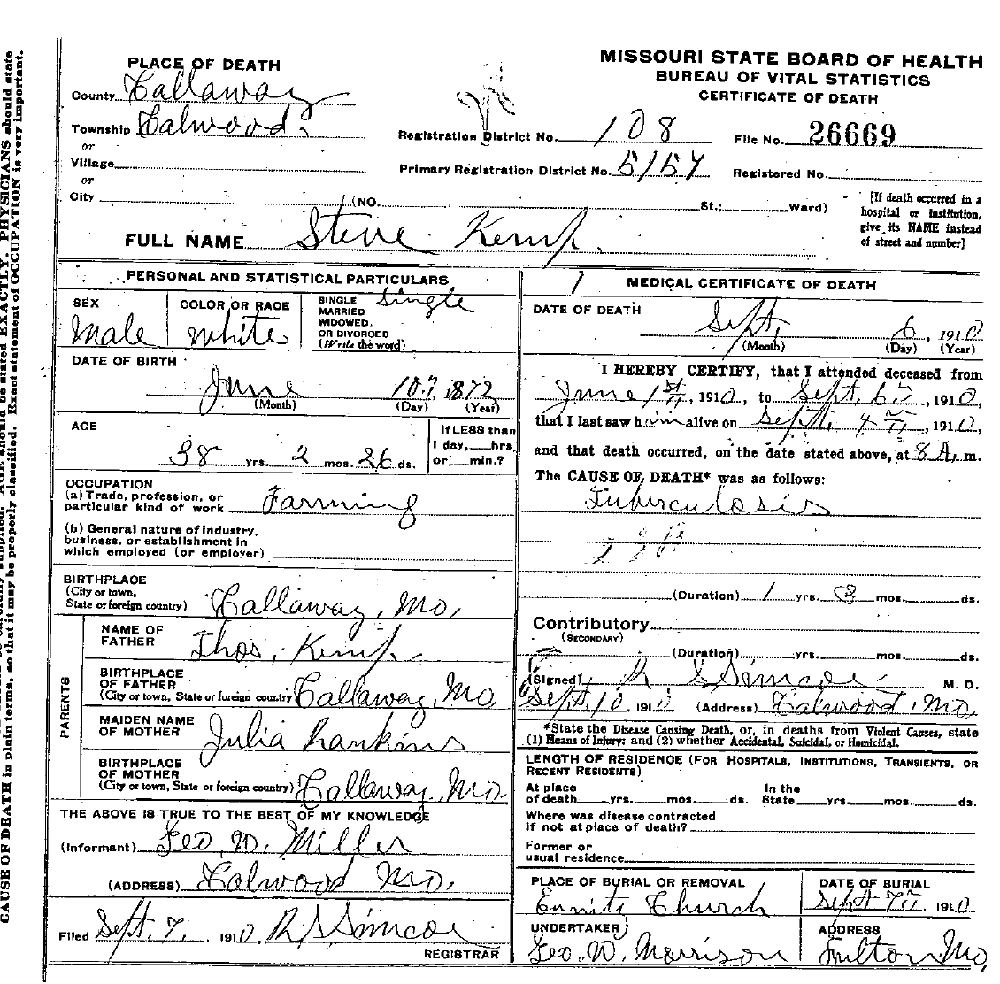 CAUSE OF DEATH in plain terms, so that it may be properly classified. Exact statement of OCCUPATION is very important.
stated EXACTLY. PHYSICIANS should state
MISSOURI STATE BOARD OF HEALTH
BUREAU OF VITAL STATISTICS
CERTIFICATE OF DEATH
PLACE OF DEATH
County Callaway
Township Calwood
or
Village
or
City
Registration District No. 108
File No. 26669
Primary Registration District No. 5157
Registered No.
(NO. St.; Ward)
[If death occurred in a
hospital or institution,
give its NAME instead
of street and number]
FULL NAME Steve Kemp.
PERSONAL AND STATISTICAL PARTICULARS
SEX
Male
COLOR OR RACE
White
SINGLE
MARRIED
WIDOWED.
OR DIVORCED
(Write the word)
Single
DATE OF BIRTH
June 10 1872
(Month) (Day) (Year)
AGE
38 yrs. 2 mos. 26 ds.
If LESS than
1 day, hrs
or min.?
OCCUPATION
(a) Trade, profession, or
particular kind of work Farming
(b) General nature of industry,
business, or establishment in
which employed (or employer)
BIRTHPLACE
(City or town,
State or foreign country) Callaway, Mo.
PARENTS
NAME OF
FATHER Thos. Kemp
BIRTHPLACE
OF FATHER
(City or town, State or foreign country Callaway, Mo
MAIDEN NAME
OF MOTHER Julia Rankins
BIRTHPLACE
OF MOTHER
(City or town, State or foreign country) Callaway, Mo
THE ABOVE IS TRUE TO THE BEST OF MY KNOWLEDGE
(Informant) Geo. W. Miller
(ADDRESS) Calwood Mo.
Filed Sept. 7, 1910 R S Simcoe
REGISTRAR
MEDICAL CERTIFICATE OF DEATH
DATE OF DEATH
Sept. 6, 1910
(Month) (Day) (Year)
I HEREBY CERTIFY, that I attended deceased from
June 1st, 1910, to Sept. 6, 1910,
that I last saw him alive on Sept. 4, 1910,
and that death occurred, on the date stated above, at 8 A. m.
The CAUSE OF DEATH* was as follows:
Tuberculosis
(Duration) 1 yrs. 3 mos. ds.
Contributory
(SECONDARY)
(Duration) yrs. mos. ds.
(Signed) R S Simcoe M. D.
Sept 10 1910 (Address) Calwood, Mo.
*State the Disease Causing Death, or, in deaths from Violent Causes, state
(1) Means of Injury; and (2) whether Accidental, Suicidal, or Homicidal.
LENGTH OF RESIDENCE (FOR HOSPITALS, INSTITUTIONS, TRANSIENTS, OR
RECENT RESIDENTS)
At place In the
of death yrs. mos. ds. State yrs. mos. ds.
Where was disease contracted
if not at place of death?
Former or
usual residence
PLACE OF BURIAL OR REMOVAL
Church
DATE OF BURIAL
Sept 7 1910
UNDERTAKER
Geo. W. Morrison
ADDRESS
Fulton Mo,